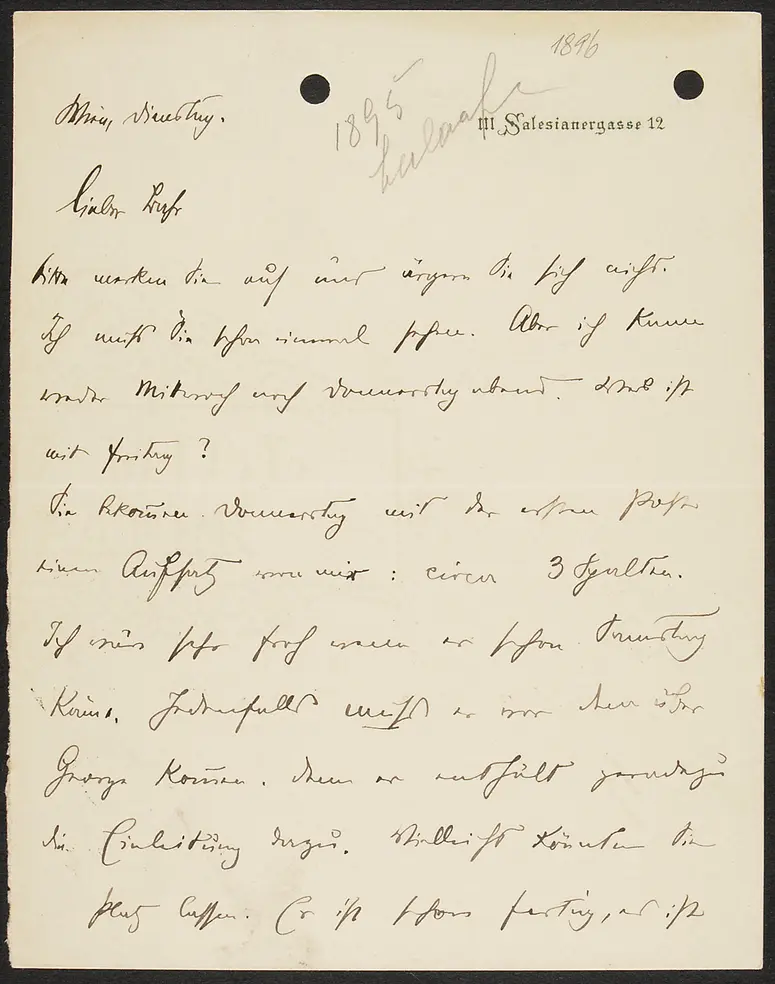 1896
1895
III Salesianergasse 12
Wien, Dienstag.
Lieber Bahr
bitte merken Sie auf und ärgern Sie sich nicht.
Ich muß Sie schon einmal sehen. Aber ich kann
weder Mittwoch noch Donnerstag abend. Was ist
mit Freitag?
Sie bekommen Donnerstag mit der ersten Post
einen Aufsatz von mir: circa 3 Spalten.
Ich wäre sehr froh wenn er schon Samstag
käme. Jedenfalls muß er vor dem über
George kommen. denn er enthält geradezu
die Einleitung dazu. Vielleicht könnten Sie
Platz lassen. Er ist schon fertig, es ist